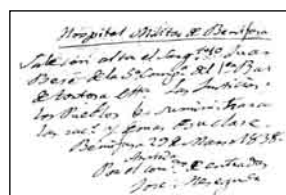 Hospital Militar de Benifasa
Sale con alta el Sarg.to 1º Juan
Besé de la 5ª Comp.ª del 1er Bar
de Tortosa las Justicias
los Pueblos le suministraran
las rac.s y demas de su clase.
Benifasa 29 de Marzo 1838
Por el com.º de entradas
José